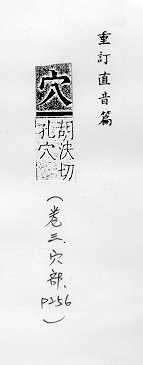 重訂直音篇
穴
胡決切
孔穴
(卷三、穴部、P256)